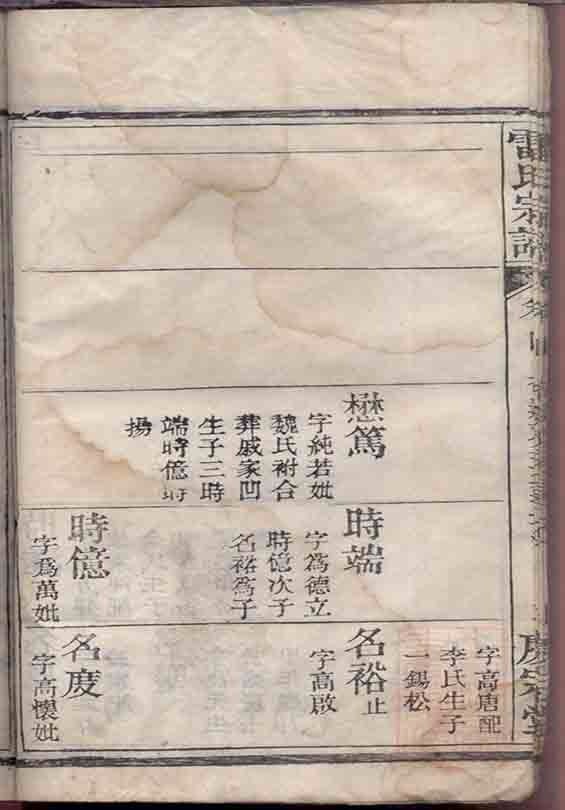 雷氏宗譜
懋篤
字純若妣
魏氏祔合
葬戚家凹
生子三時
端時億時
揚
時端
字爲德立
時億次子
名裕爲子
時億
字爲萬妣
字高唐配
李氏生子
一錫松
名裕止
字高啟
名度
字高懷妣